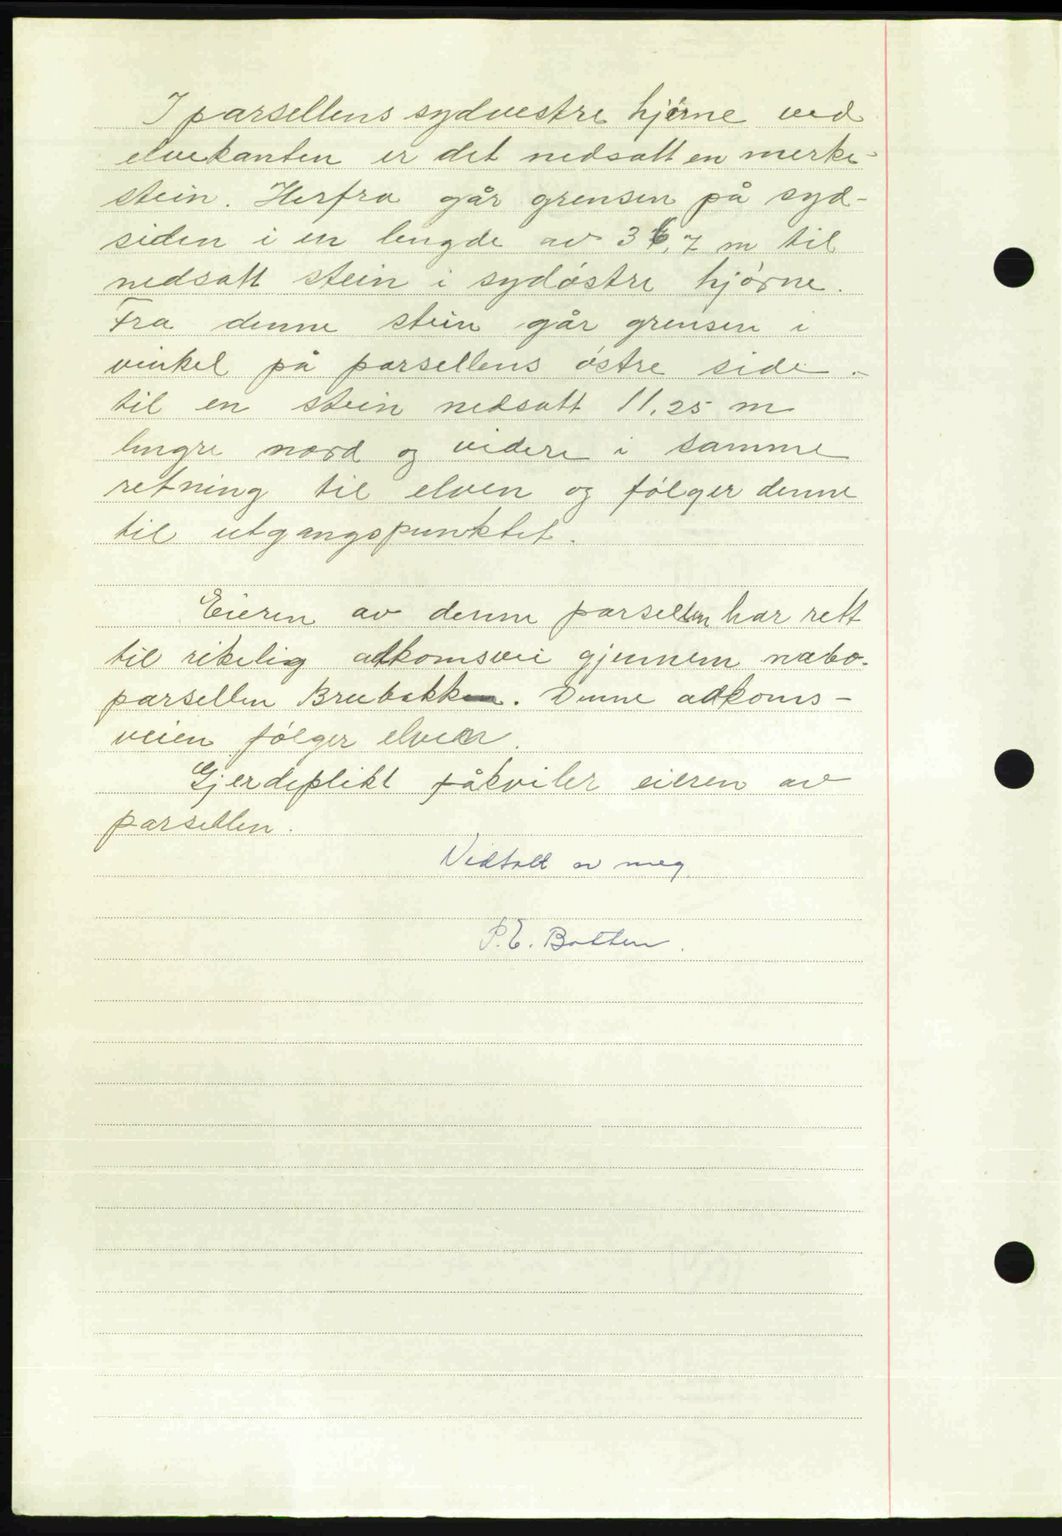 I parsellens sydvestre hjørne ved
elvekanten er det nedsatt en merke-
stein. Herfra går grensen på syd-
siden i en lengde av 36,7 m til
nedsatt stein i sydøstre hjørne.
Fra denne stein går grensen i
vinkel på parsellens østre side
til en stein nedsatt 11,25 m
lengre nord og videre i samme
retning til elven og følger denne
til utgangspunktet.
Eieren av denne parsellen har rett
til rikelig adkomsvei gjennem nabo-
parsellen Brubakken. Denne adkoms-
veien følger elven.
Gjerdeplikt påkviler eieren av
parsellen.
Vedtatt av meg
P.E. Botten.